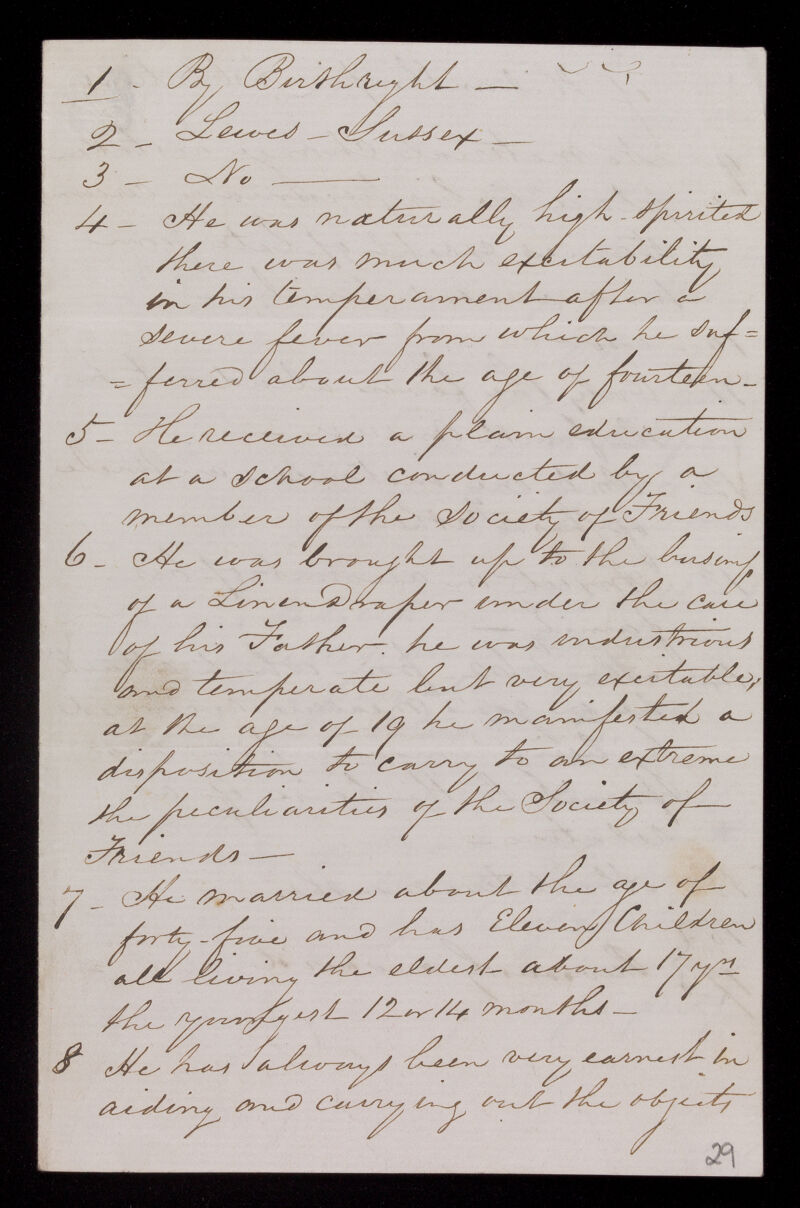 1 - By Birthright -
2 - Lewes - Sussex -
3 - No -
4 - He was naturally high-spirited
there was much excitability
in his temperament after a
severe fever from which he suf=
=ferred about the age of fourteen -
5 - He received a plain education
at a school conducted by a
member of the Society of Friends
6 - He was brought up to the businss
of a Linen Draper under the care
of his Father. he was industrious
and temperate but very excitable;
at the age of 19 he manifested a
disposition to carry to an extreme
the peculiarities of the Society of
Friends -
7 - He married about the age of
forty-five and has Eleven Children
all living the eldest about 17 yrs
the youngest 12 or 14 months -
8 He has always been very earnest in
aiding and carrying out the objects
29